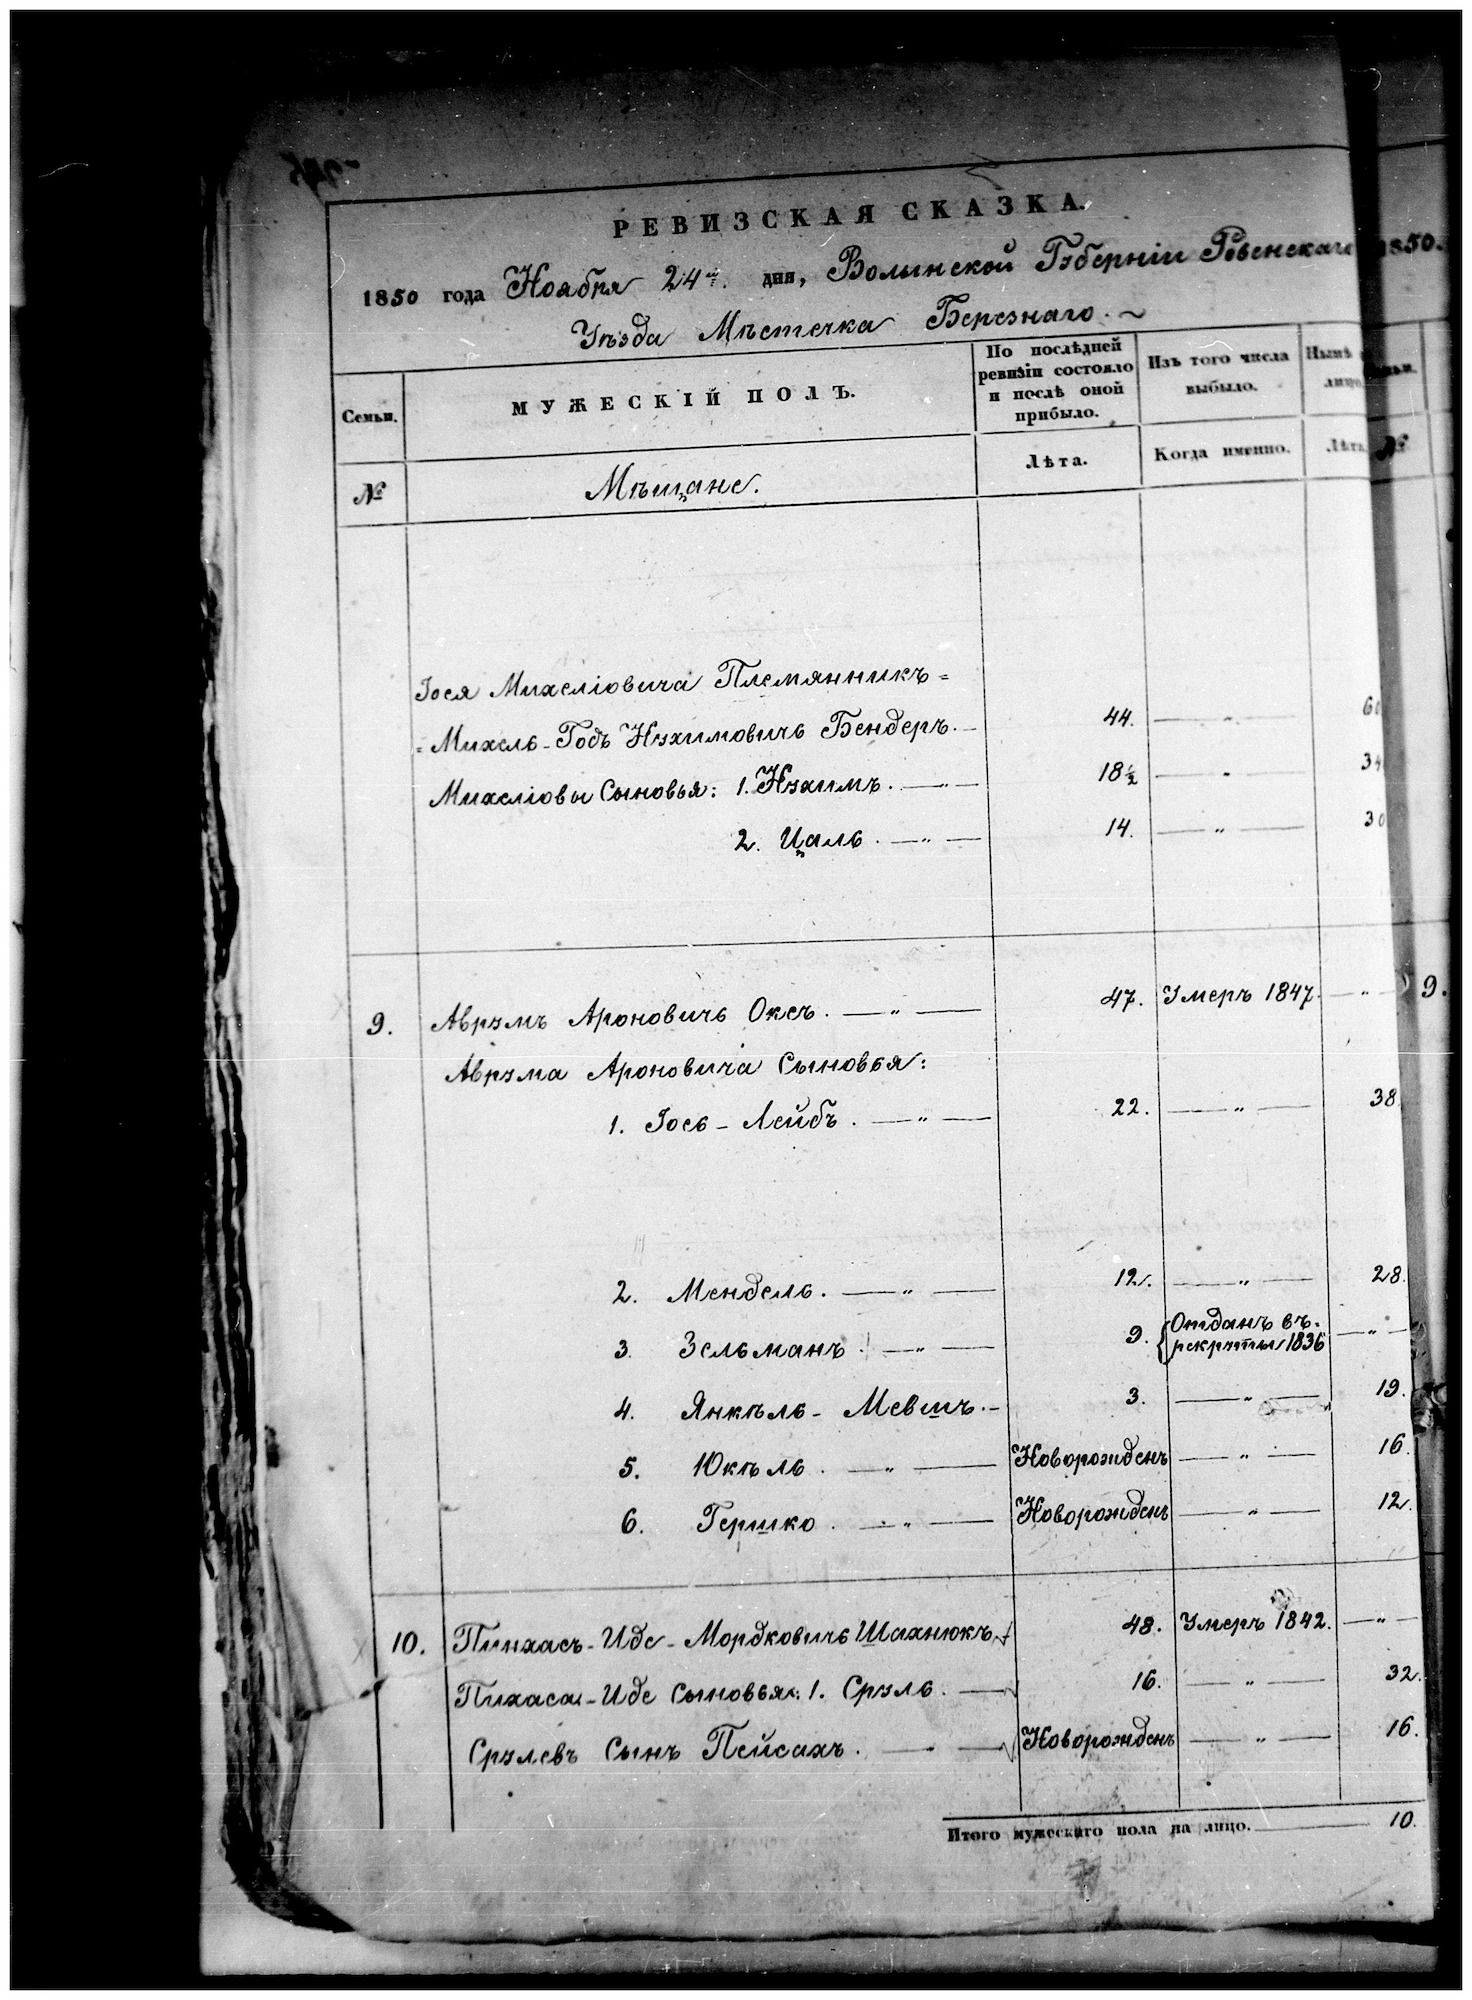 РЕВИЗСКАЯ СКАЗКА.
1850 года Ноября 24 дня, Волынской Губерніи Ровенскаго
Уѣзда Мѣстечка Березнаго.
1850.
Семьи.
МУЖЕСКІЙ ПОЛЪ.
По послѣдней ревизіи состояло и послѣ оной прибыло.
Изъ того числа выбыло.
Нынѣ
лицо.
№
Мѣщане.
Лѣта.
Когда именно.
Лѣта.
№
Іося Михеліовича Племянникъ =
= Михель-Годъ Нухимовичъ Бендеръ. — 44. — " — 60
Михеліовы Сыновья: 1. Нухимъ. — " — 18½ — " — 34
2. Цаль. — " — 14. — " — 30
9. Аврумъ Ароновичь Оксъ. — " — 47. Умеръ 1847. — " — 9.
Аврума Ароновича Сыновья:
1. Іось-Лейбъ. — " — 22. — " — 38
2. Мендель. — " — 12. — " — 28.
3. Зельманъ. — " — 9. { Отданъ въ рекруты 1836 — " —
4. Янкѣль-Мевшъ. — 3. — " — 19.
5. Юкѣль. — " — Новорожденъ — " — 16.
6. Гершко. — " — Новорожденъ — " — 12.
10. Пинхасъ-Иде-Мордковичь Шахнюкъ 48. Умеръ 1842. — " —
Пихаса-Иде Сыновья: 1. Сруль. — 16. — " — 32.
Срулевъ Сынъ Пейсахъ. — " — Новорожденъ — " — 16.
Итого мужескаго пола на лицо. — 10.